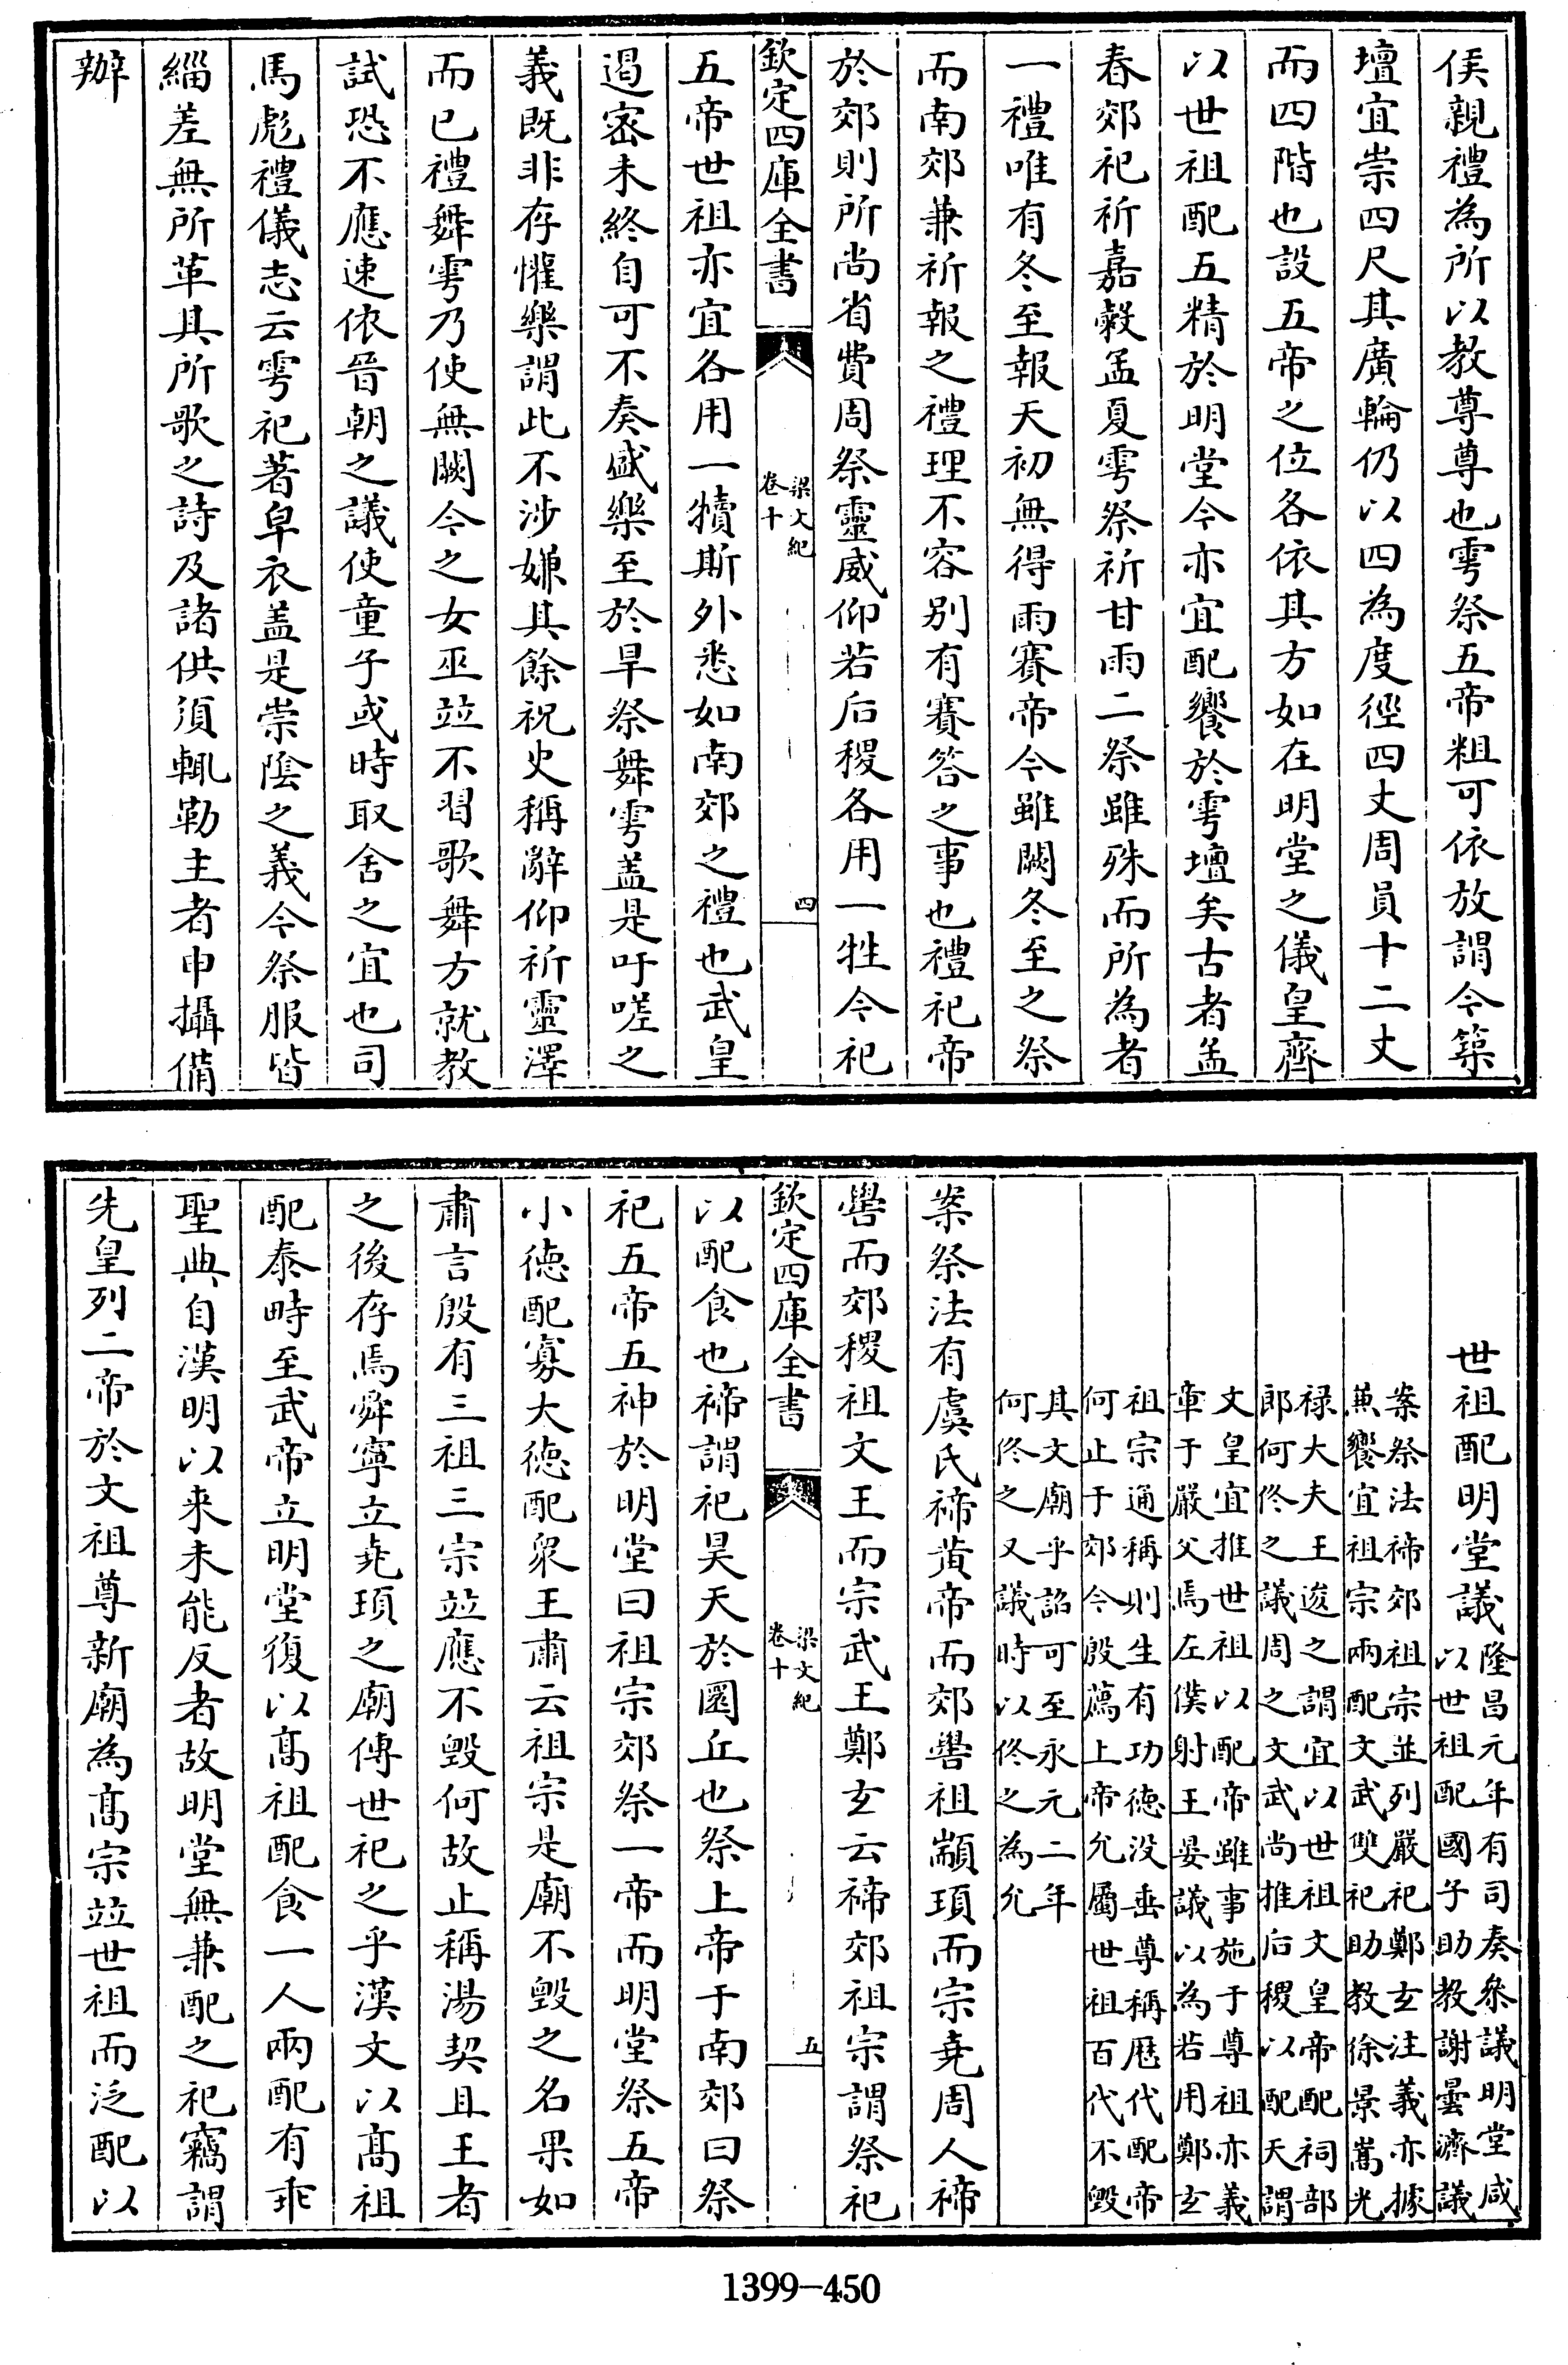 侯親禮為所以教尊尊也雩祭五帝粗可依放謂今築
壇宜崇四尺其廣輪仍以四為度徑四丈周員十二丈
而四階也設五帝之位各依其方如在明堂之儀皇齊
以世祖配五精於明堂今亦宜配饗於雩壇矣古者孟
春郊祀祈嘉穀孟夏雩祭祈甘雨二祭雖殊而所為者
一禮唯有冬至報天初無得雨賽帝今雖闕冬至之祭
而南郊兼祈報之禮理不容别有賽答之事也禮祀帝
於郊則所尚省費周祭靈威仰若后稷各用一牲今祀
欽定四庫全書
梁文紀
卷十
四
五帝世祖亦宜各用一犢斯外悉如南郊之禮也武皇
遏密未終自可不奏盛樂至於旱祭舞雩盖是吁嗟之
義既非存懽樂謂此不涉嫌其餘祝史稱辭仰祈靈澤
而已禮舞雩乃使無闕今之女巫竝不習歌舞方就教
試恐不應速依晉朝之議使童子或時取舍之宜也司
馬彪禮儀志云雩祀著皁衣盖是崇陰之義今祭服皆
緇差無所革其所歌之詩及諸供須輒勒主者申攝備
辦
世祖配明堂議隆昌元年有司奏叅議明堂咸
以世祖配國子助教謝曇濟議
案祭法禘郊祖宗並列嚴祀鄭玄注義亦據
兼饗宜祖宗兩配文武雙祀助教徐景嵩光
禄大夫王逡之謂宜以世祖文皇帝配祠部
郎何佟之議周之文武尚推后稷以配天謂
文皇宜推世祖以配帝雖事施于尊祖亦義
章于嚴父焉左僕射王晏議以為若用鄭玄
祖宗通稱則生有功德没垂尊稱歴代配帝
何止于郊今殷薦上帝允屬世祖百代不毀
其文廟乎詔可至永元二年
何佟之又議時以佟之為允
案祭法有虞氏禘黄帝而郊嚳祖顓頊而宗堯周人禘
嚳而郊稷祖文王而宗武王鄭玄云禘郊祖宗謂祭祀
欽定四庫全書
梁文紀
卷十
五
以配食也禘謂祀昊天於圜丘也祭上帝于南郊曰祭
祀五帝五神於明堂曰祖宗郊祭一帝而明堂祭五帝
小德配寡大德配衆王肅云祖宗是廟不毀之名果如
肅言殷有三祖三宗竝應不毀何故止稱湯契且王者
之後存焉舜寧立堯頊之廟傳世祀之乎漢文以髙祖
配泰畤至武帝立明堂復以髙祖配食一人兩配有乖
聖典自漢明以来未能反者故明堂無兼配之祀竊謂
先皇列二帝於文祖尊新廟為髙宗竝世祖而泛配以
1399-450